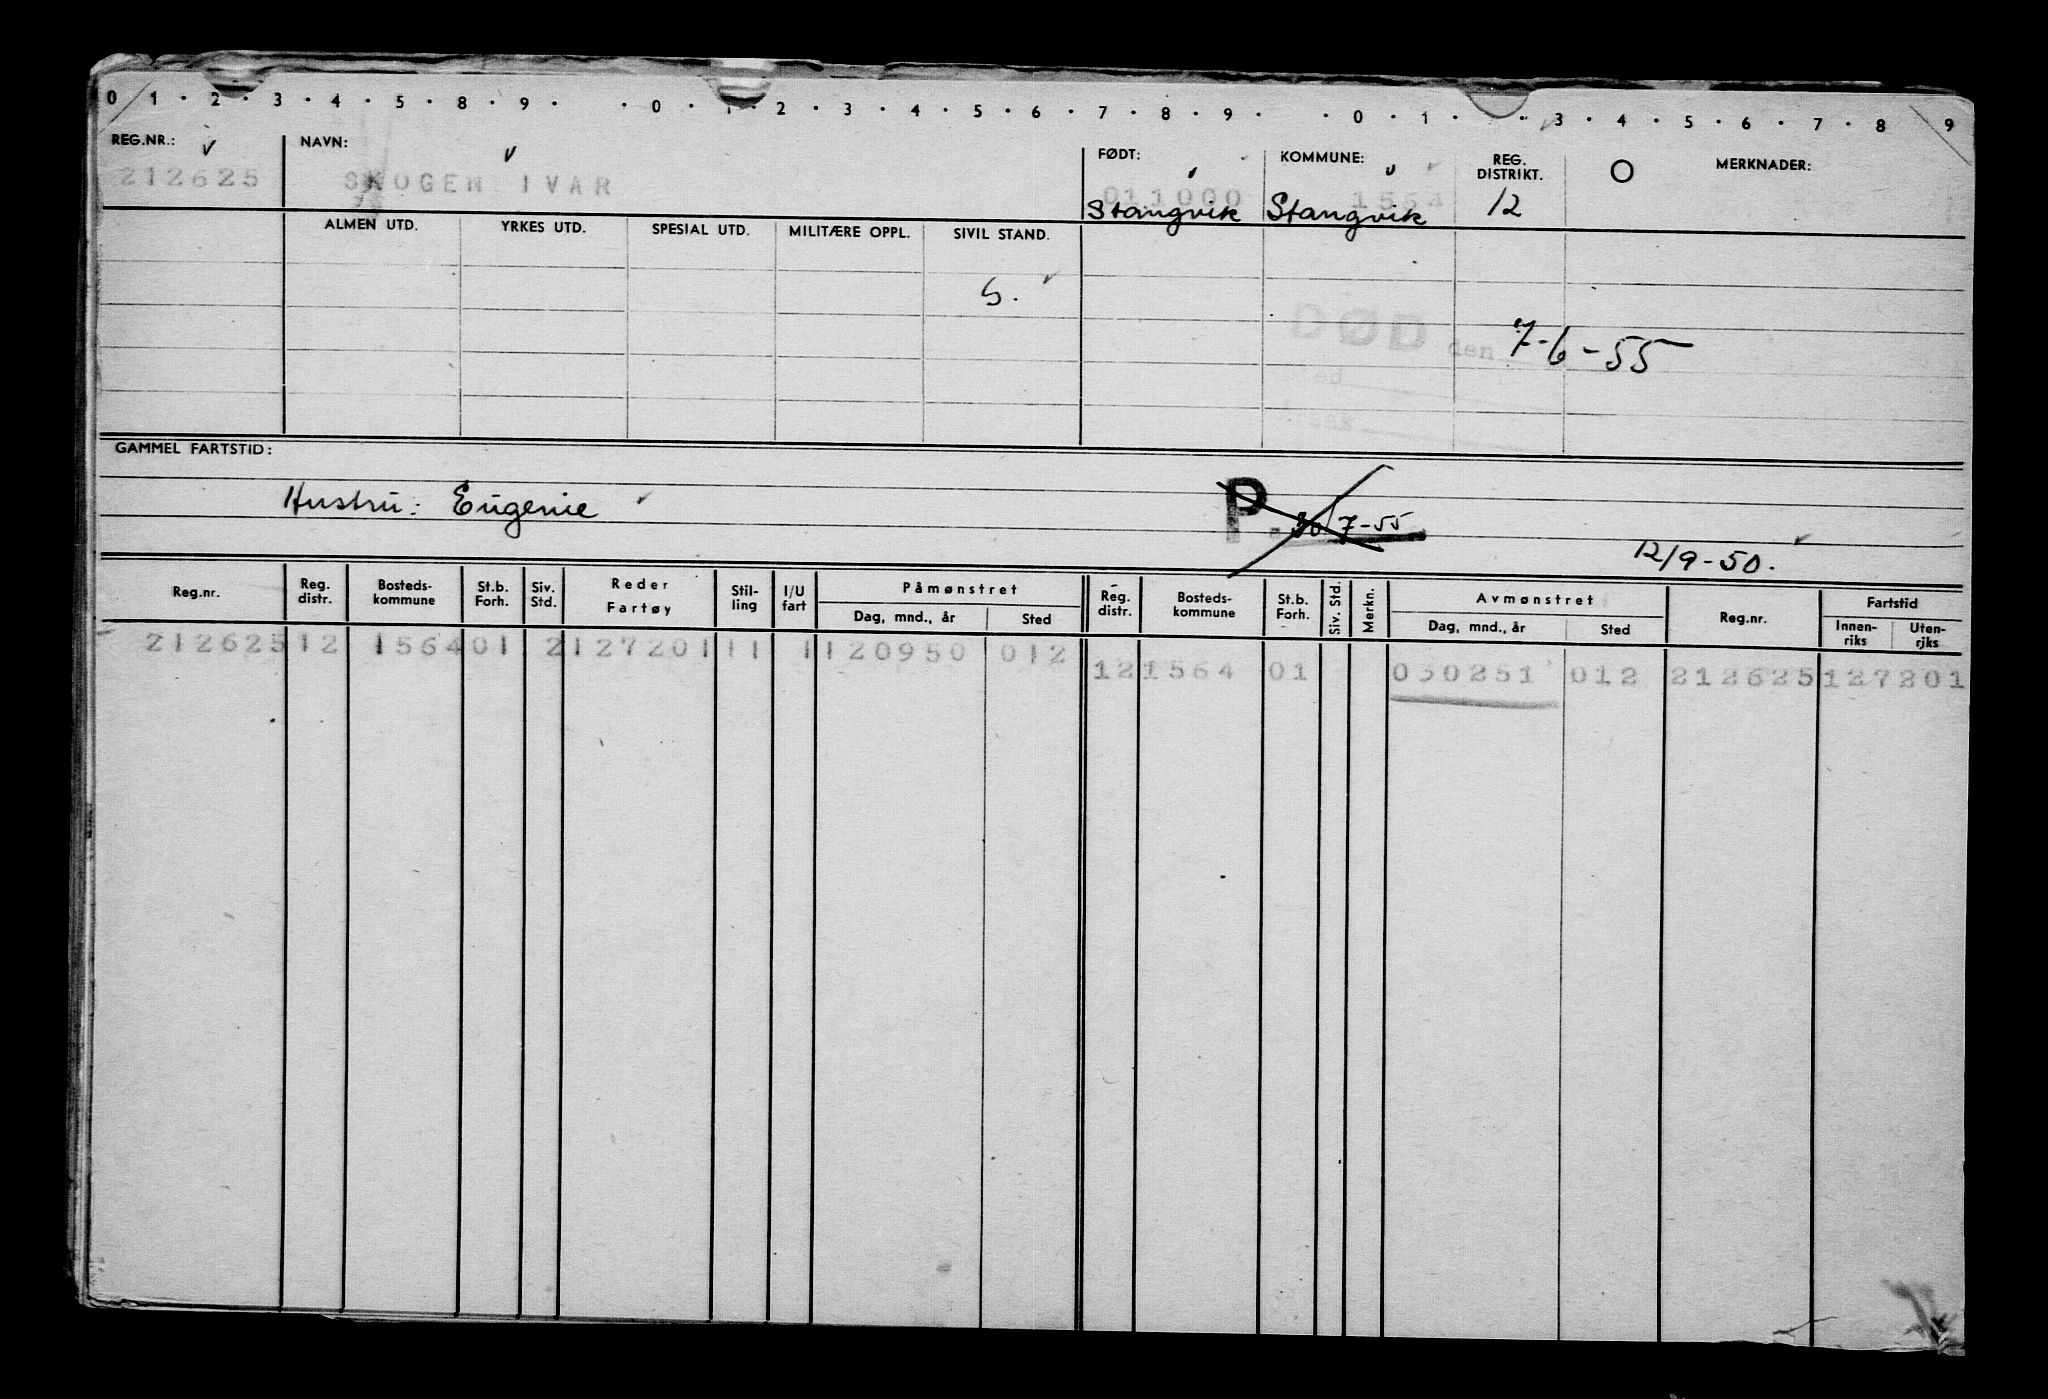 0 1 · 2 · 3 · 4 · 5 · 8 · 9 · · 0 · 1 · 2 · 3 · 4 · 5 · 6 · 7 · 8 · 9 · · 0 · 1 · · 3 · 4 · 5 · 6 · 7 · 8 9
REG.NR.: NAVN: FØDT: KOMMUNE: REG. DISTRIKT. O MERKNADER:
212625 SKOGEN IVAR 011000 1564
Stangvik Stangvik 12
ALMEN UTD. YRKES UTD. SPESIAL UTD. MILITÆRE OPPL. SIVIL STAND.
S.
DØD den 7-6-55
Sted
Årsak
GAMMEL FARTSTID:
Hustru: Eugenie P. 30/7-55
12/9-50.
Reg.nr. Reg. distr. Bosteds-kommune St.b. Forh. Siv. Std. Reder Fartøy Stil-ling I/U fart Påmønstret Reg. distr. Bosteds-kommune St.b. Forh. Siv. Std. Merkn. Avmønstret Reg.nr. Fartstid
Dag, mnd., år Sted Dag, mnd., år Sted Innen-riks Uten-rjks
212625 12 1564 01 2 127201 11 1 120950 012 12 1564 01 030251 012 212625 127201